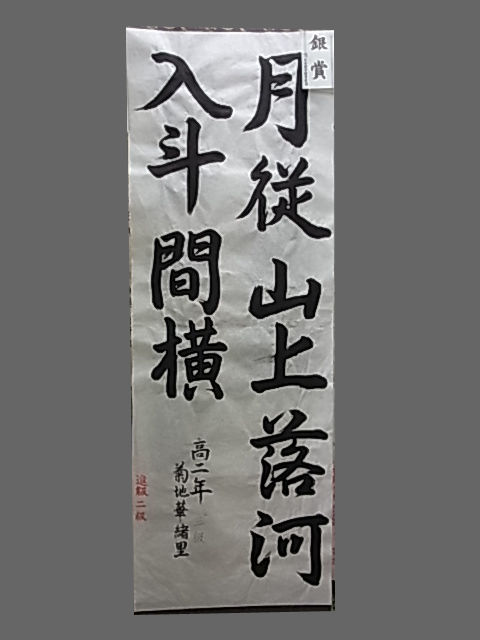 銀賞
月從山上落河
入斗間横
高二年
菊地華緒里
進級二級